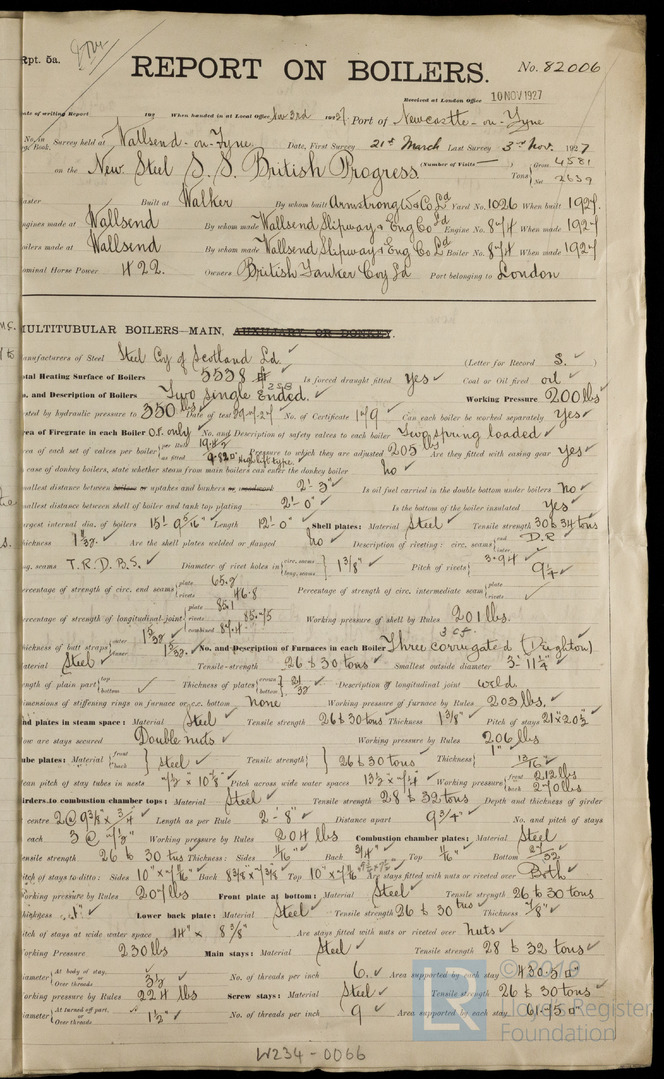 Rpt. 5a.
REPORT ON BOILERS.
No. 82006
Received at London Office 10 NOV 1927
Date of writing Report 192 When handed in at Local Office Nov 3rd 1927 Port of Newcastle-on-Tyne
No. in Survey held at Wallsend-on-Tyne Date, First Survey 21st March Last Survey 3rd Nov. 1927
on the New Steel S.S. British Progress (Number of Visits —) Gross 4581
Tons Net 2639
Master Built at Walker By whom built Armstrong W. & Co Ld Yard No. 1026 When built 1927.
Engines made at Wallsend By whom made Wallsend Slipway & Eng Co Ld Engine No. 874 When made 1927
Boilers made at Wallsend By whom made Wallsend Slipway & Eng Co Ld Boiler No. 874 When made 1927
Nominal Horse Power 422. Owners British Tanker Coy Ld Port belonging to London
MULTITUBULAR BOILERS—MAIN, AUXILIARY OR DONKEY.
Manufacturers of Steel Steel Cy of Scotland Ld. (Letter for Record S.)
Total Heating Surface of Boilers 5538 Is forced draught fitted Yes Coal or Oil fired oil
No. and Description of Boilers Two single Ended. Working Pressure 200 lbs
Tested by hydraulic pressure to 350 lbs Date of test No. of Certificate 179 Can each boiler be worked separately Yes
Area of Firegrate in each Boiler O.F. only No. and Description of safety valves to each boiler Two spring loaded
Area of each set of valves per boiler Pressure to which they are adjusted 205 lbs Are they fitted with easing gear Yes
In case of donkey boilers, state whether steam from main boilers can enter the donkey boiler no
Smallest distance between boilers or uptakes and bunkers or woodwork 2'-3" Is oil fuel carried in the double bottom under boilers No
Smallest distance between shell of boiler and tank top plating 2'-0" Is the bottom of the boiler insulated Yes
Largest internal dia. of boilers 15'-9 5/16" Length 12'-0" Shell plates: Material Steel Tensile strength 30 to 34 tons
Thickness Are the shell plates welded or flanged no Description of riveting: circ. seams end D.R.
long. seams T.R.D.B.S. Diameter of rivet holes in circ. seams long. seams 1 3/8" Pitch of rivets 3.94 9 1/4
Percentage of strength of circ. end seams plate 65.2 rivets 46.8 Percentage of strength of circ. intermediate seam plate rivets
Percentage of strength of longitudinal joint plate 85.1 rivets 85.75 combined 87.4 Working pressure of shell by Rules 201 lbs.
Thickness of butt straps outer 1 5/32 inner 1 5/32 No. and Description of Furnaces in each Boiler 3 C.F. Three corrugated (Deighton)
Material Steel Tensile strength 26 to 30 tons Smallest outside diameter 3'-11 1/4"
Length of plain part top bottom Thickness of plates crown bottom 21/32 Description of longitudinal joint weld.
Dimensions of stiffening rings on furnace or c.c. bottom none Working pressure of furnace by Rules 203 lbs.
End plates in steam space: Material Steel Tensile strength 26 to 30 tons Thickness 1 3/8" Pitch of stays 21" x 20 1/2"
How are stays secured Double nuts Working pressure by Rules 206 lbs
Tube plates: Material front back Steel Tensile strength 26 to 30 tons Thickness 1" 13/16"
Mean pitch of stay tubes in nests Pitch across wide water spaces 13 1/2" x 7 1/4" Working pressure front 212 lbs back 270 lbs
Girders to combustion chamber tops: Material Steel Tensile strength 28 to 32 tons Depth and thickness of girder
at centre 2@9 3/8" x 3/4" Length as per Rule 2'-8" Distance apart 9 3/4" No. and pitch of stays
in each 3 @ 7 1/2" Working pressure by Rules 204 lbs Combustion chamber plates: Material Steel
Tensile strength 26 to 30 tons Thickness: Sides 11/16" Back 3/4" Top 11/16" Bottom 27/32
Pitch of stays to ditto: Sides 10" x 7 1/2" Back 8 3/8" x 7 3/8" Top 10" x 7 1/2" Are stays fitted with nuts or riveted over Both
Working pressure by Rules 207 lbs Front plate at bottom: Material Steel Tensile strength 26 to 30 tons
Thickness 1" Lower back plate: Material Steel Tensile strength 26 to 30 tons Thickness 7/8"
Pitch of stays at wide water space 14" x 8 3/8" Are stays fitted with nuts or riveted over nuts
Working Pressure 230 lbs Main stays: Material Steel Tensile strength 28 to 32 tons
Diameter At body of stay, or Over threads 3 1/2 No. of threads per inch 6. Area supported by each stay 430.5 □"
Working pressure by Rules 224 lbs Screw stays: Material Steel Tensile strength 26 to 30 tons
Diameter At turned off part, or Over threads 1 1/2" No. of threads per inch 9 Area supported by each stay 61.75 □"
W234-0066
LR
© 2019
Lloyd's Register
Foundation